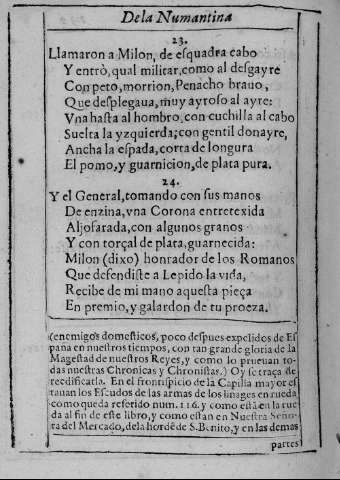 De la Numantina
23.
Llamaron a Milon, de esquadra cabo
Y entrò, qual militar, como al desgayre
Con peto, morrion, Penacho brauo,
Que desplegaua, muy ayroso al ayre:
Vna hasta al hombro, con cuchilla al cabo
Suelta la yzquierda; con gentil donayre,
Ancha la espada, corta de longura
El pomo, y guarnicion, de plata pura.
24.
Y el General, tomando con sus manos
De enzina, vna Corona entretexida
Aljofarada, con algunos granos
Y con torçal de plata, guarnecida:
Milon (dixo) honrador de los Romanos
Que defendiste a Lepido la vida,
Recibe de mi mano aquesta pieça
En premio, y galardon de tu proeza.
(enemigos domesticos, poco despues expelidos de Es
paña en nuestros tiempos, con tan grande gloria de la
Magestad de nuestros Reyes, y como lo prueuan to-
das nuestras Chronicas y Chronistas.) Oy se traça de
reedificarla. En el frontispicio de la Capilla mayor es
tauan los Escudos de las armas de los linages en rueda
como queda referido num. 116. y como està en la rue
da al fin de este libro, y como estan en Nuestra Seño-
ra del Mercado, de la horde de S. Benito, y en las demas
partes